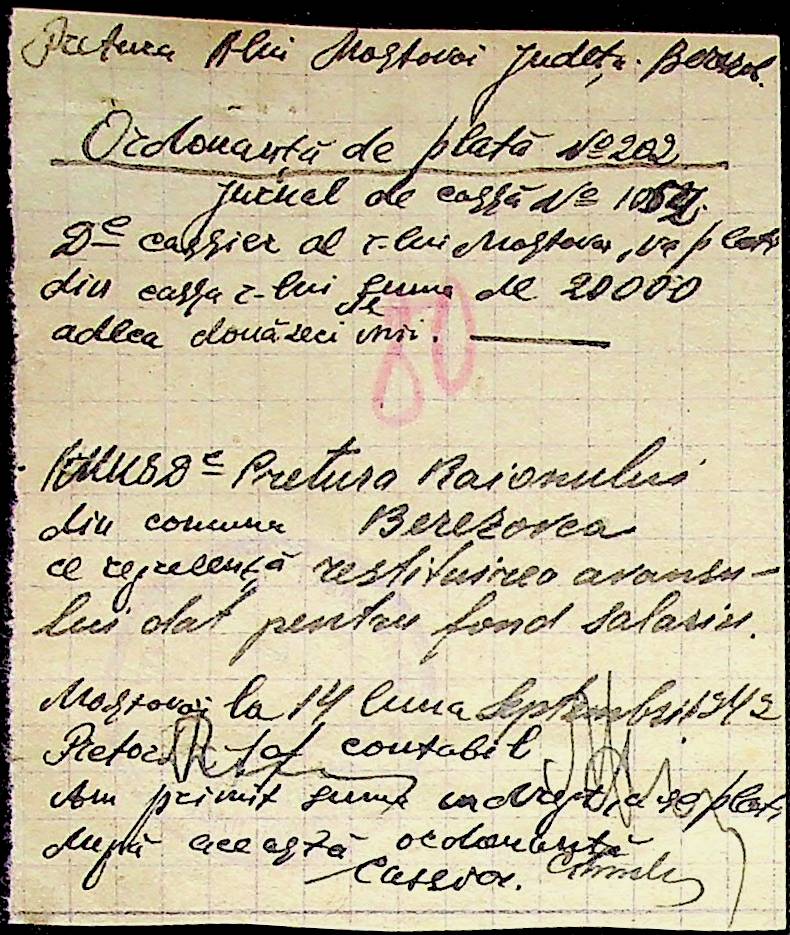 Pretura R-lui Mostovoi Județ. Berezov.
Ordonanță de plată № 202
Jurnal de cassă №
Dl cassier al r-lui Mostovoi, va plati
din cassa r-lui suma de 20000
adeca douăzeci de mii.
80
Dl Pretura Raionului
din comuna Berezovca
ce reprezentă restituirea avansu-
lui dat pentru fond salariu.
Mostovoi la 14 luna Septembrie 1942
Pretor Șef contabil
Am primit suma se plati
după această ordonanță
Cassier.